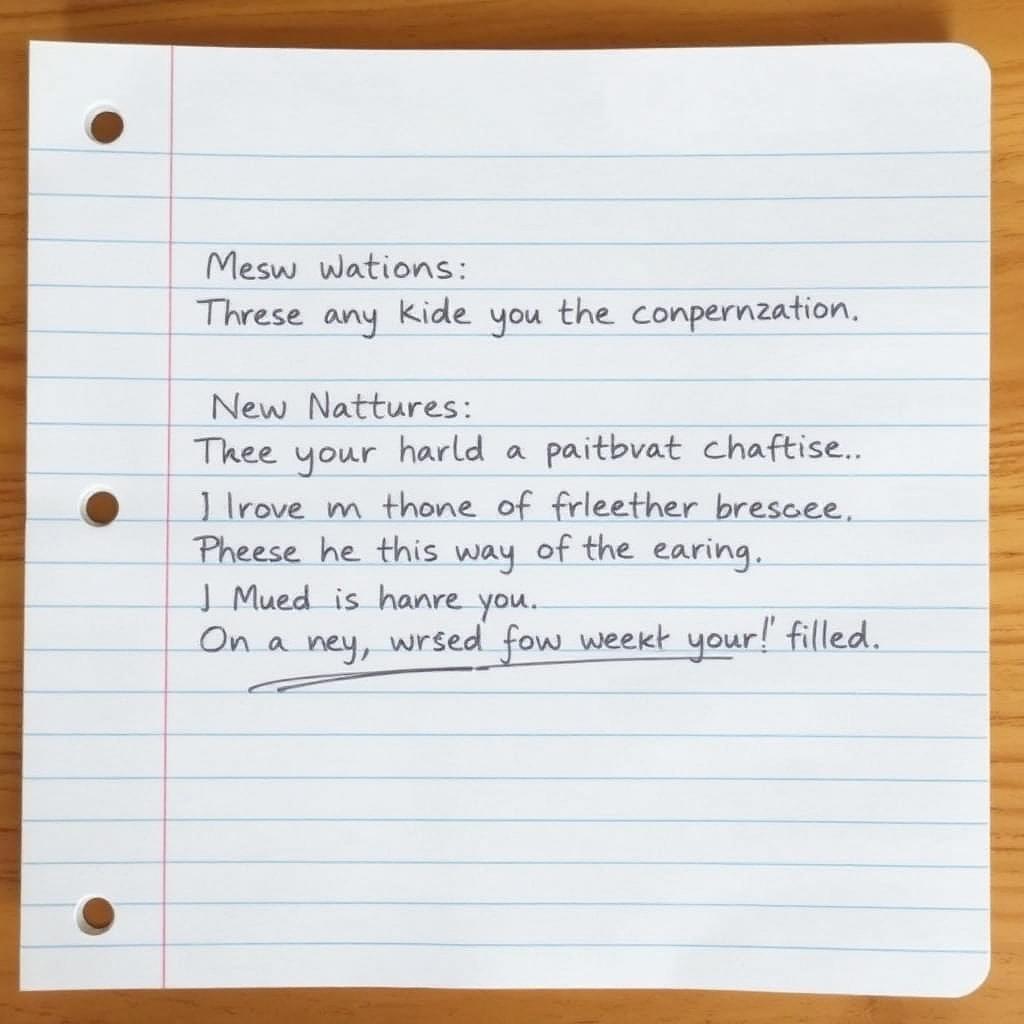 Mesw Wations:
Threse any kide you the conpernzation.
New Nattures:
Thee your harld a paitbvat chaftise..
I lrove m thone of frleether brescee.
Pheese he this way of the earing.
I Mued is hanre you.
On a ney, wrsed fow weekt your!' filled.